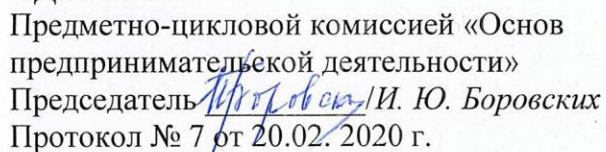 Предметно-цикловой комиссией «Основ
предпринимательской деятельности»
Председатель /И. Ю. Боровских
Протокол № 7 от 20.02. 2020 г.